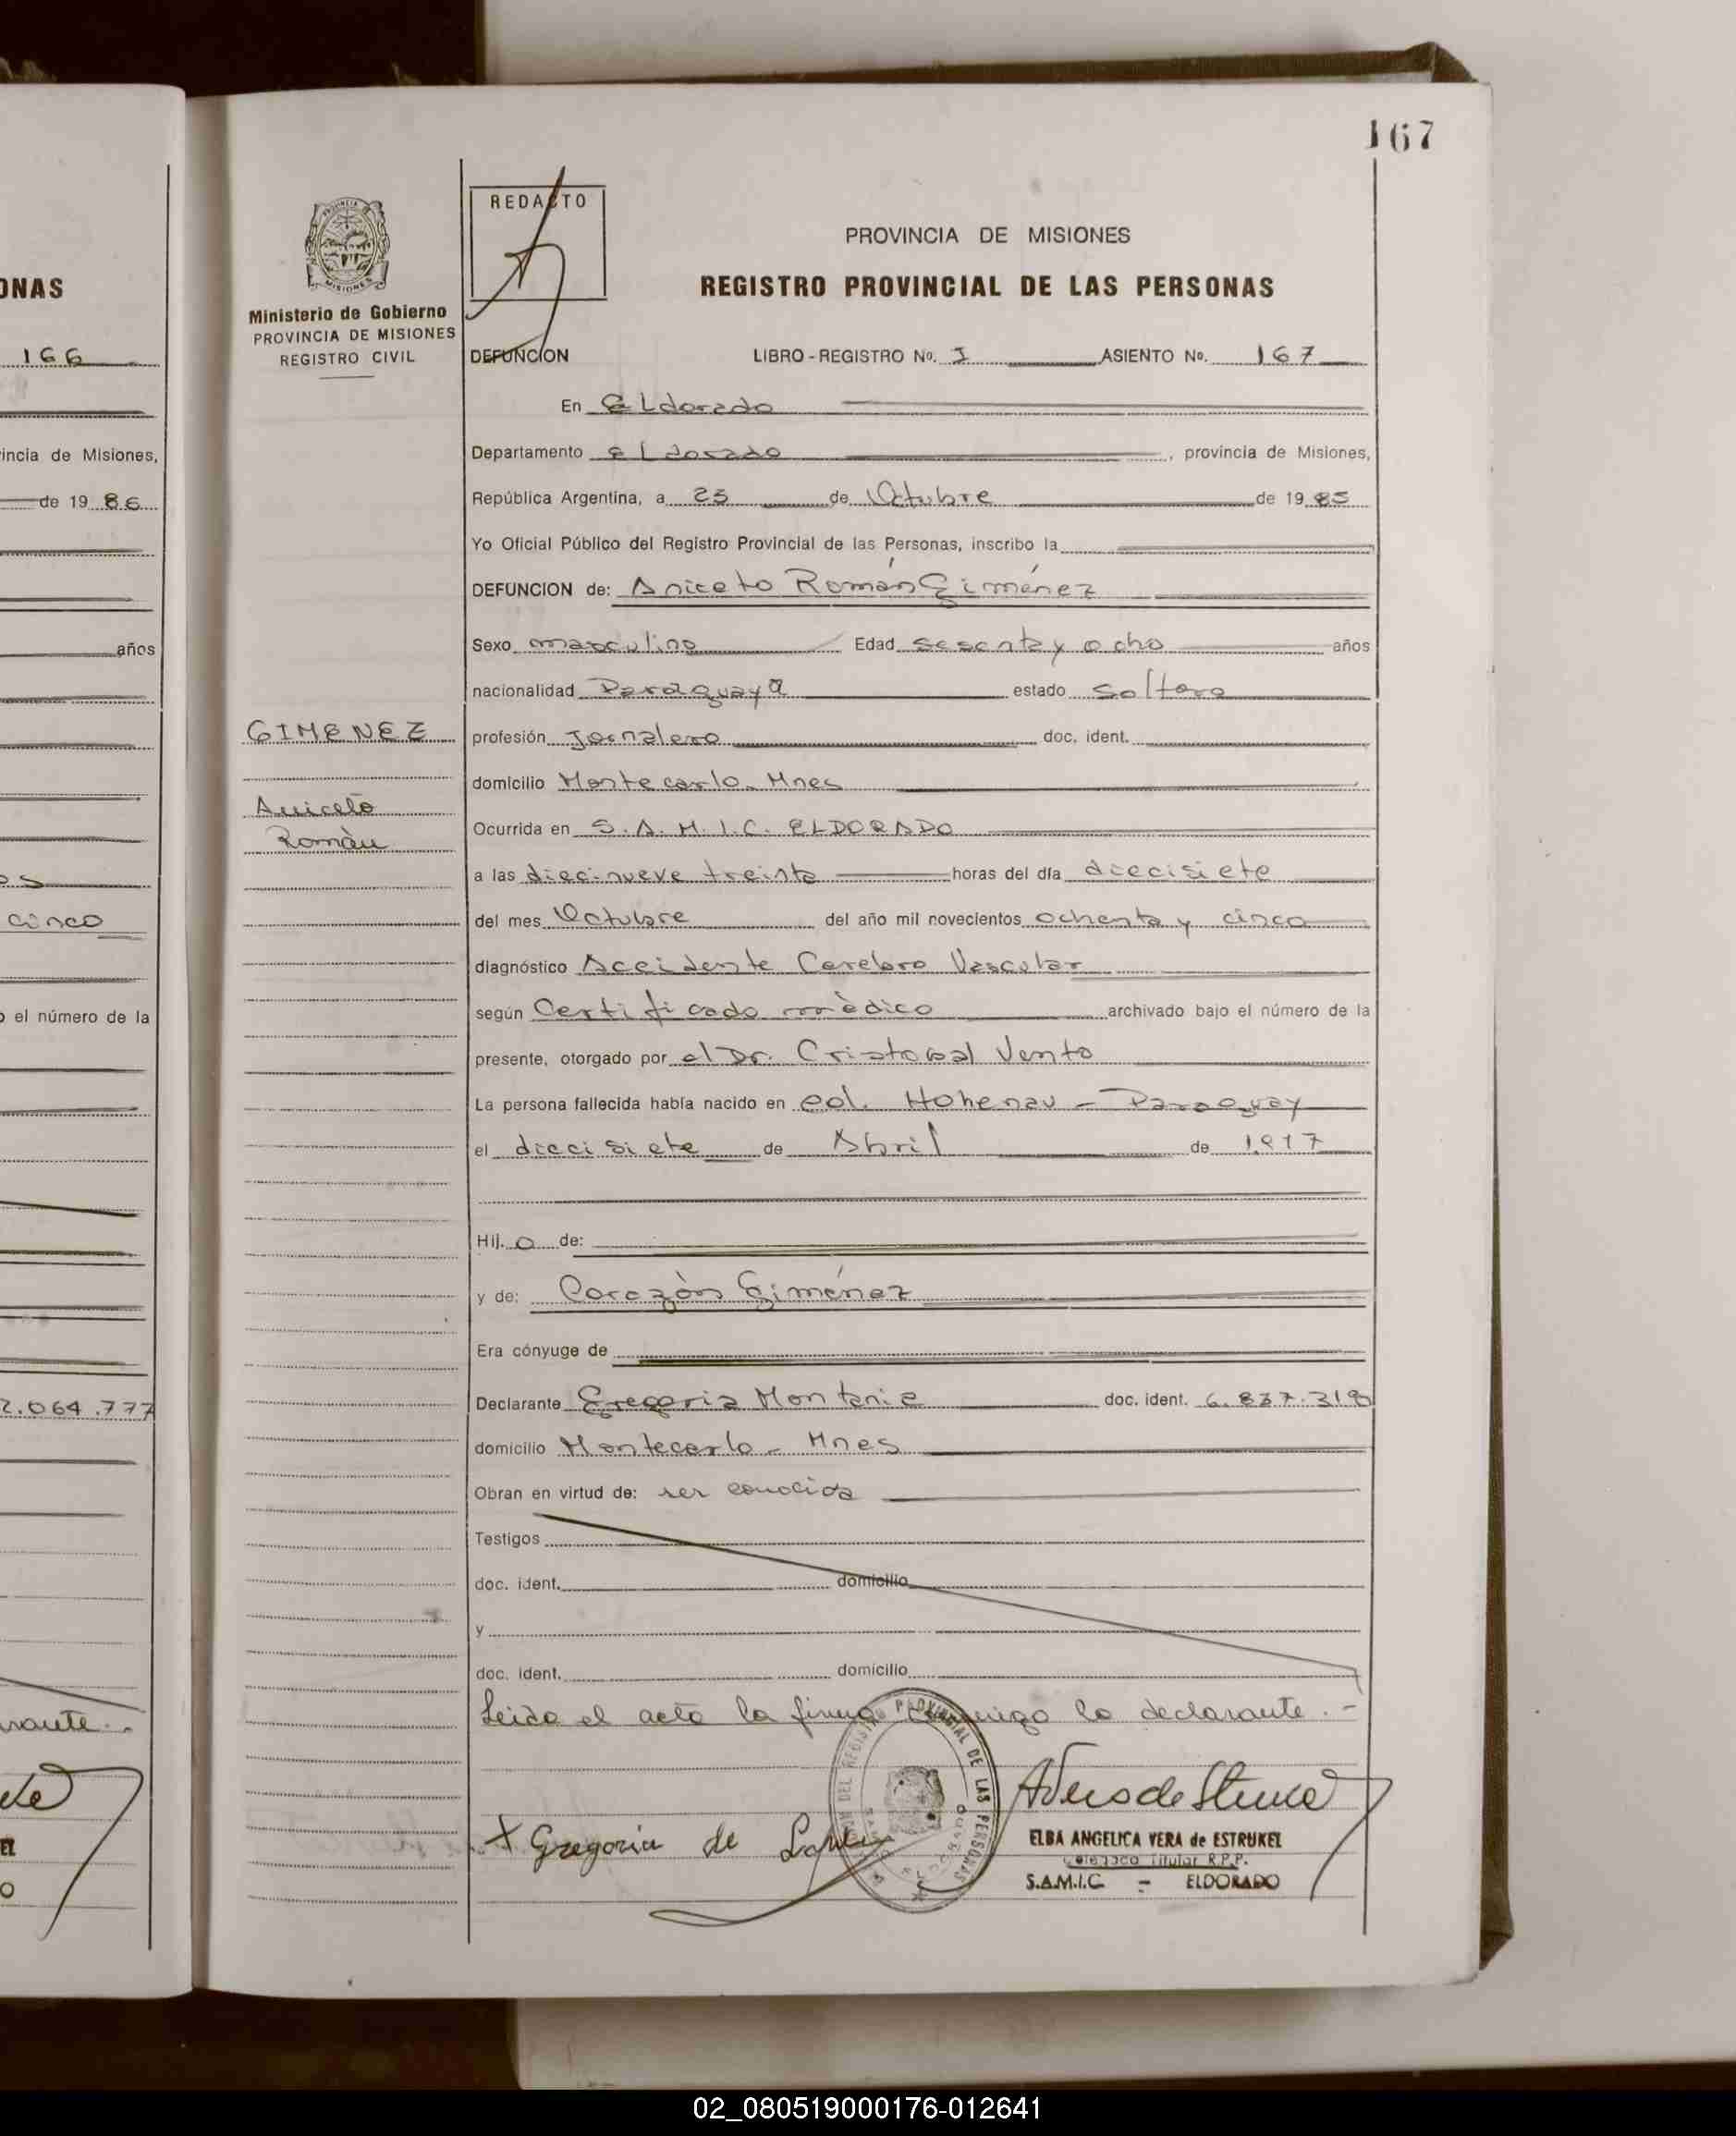 167
ONAS
166
incia de Misiones,
de 19 86
años
cinco
el número de la
2.064.777
REDACTO
PROVINCIA DE MISIONES
REGISTRO PROVINCIAL DE LAS PERSONAS
Ministerio de Gobierno
PROVINCIA DE MISIONES
REGISTRO CIVIL
DEFUNCION LIBRO - REGISTRO No. I ASIENTO No. 167
En ELdorado
Departamento eLdorado, provincia de Misiones,
República Argentina, a 23 de Octubre de 19 85
Yo Oficial Público del Registro Provincial de las Personas, inscribo la
DEFUNCION de: Aniceto Román Giménez
Sexo masculino Edad sesenta y ocho años
nacionalidad Paraguaya estado soltero
GIMENEZ
profesión Jornalero doc. ident.
domicilio Montecarlo. Mnes
Aniceto
Román
Ocurrida en S.A.M.I.C. ELDORADO
a las diecinueve treinta horas del día diecisiete
del mes Octubre del año mil novecientos ochenta y cinco
diagnóstico Accidente Cerebro Vascular
según Certificado mèdico archivado bajo el número de la
presente, otorgado por el Dr. Cristobal Vento
La persona fallecida había nacido en Col. Hohenau - Paraguay
el diecisiete de Abril de 1.917
Hij. o de:
y de: Corazòn Giménez
Era cónyuge de
Declarante Gregoria Montanie doc. ident. 6.837.318
domicilio Montecarlo - Mnes
Obran en virtud de: ser conocida
Testigos
doc. ident. domicilio
y
doc. ident. domicilio
Leido el acta la firma conmigo la declarante.-
x Gregoria de
ELBA ANGELICA VERA de ESTRUKEL
Titular R.P.P.
S.A.M.I.C. - ELDORADO
02_080519000176-012641